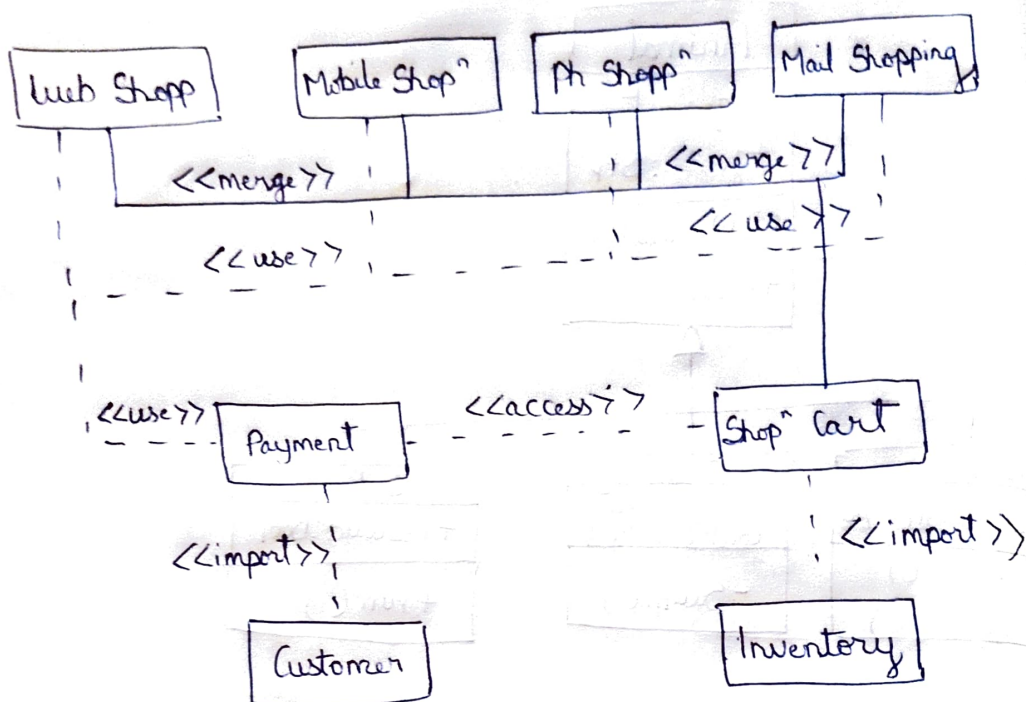 Web Shopp
Mobile Shopⁿ
Ph Shoppⁿ
Mail Shopping
<<merge>>
<<merge>>
<<use>>
<<use>>
<<use>>
<<access>>
Payment
Shopⁿ Cart
<<import>>
<<import>>
Customer
Inventory